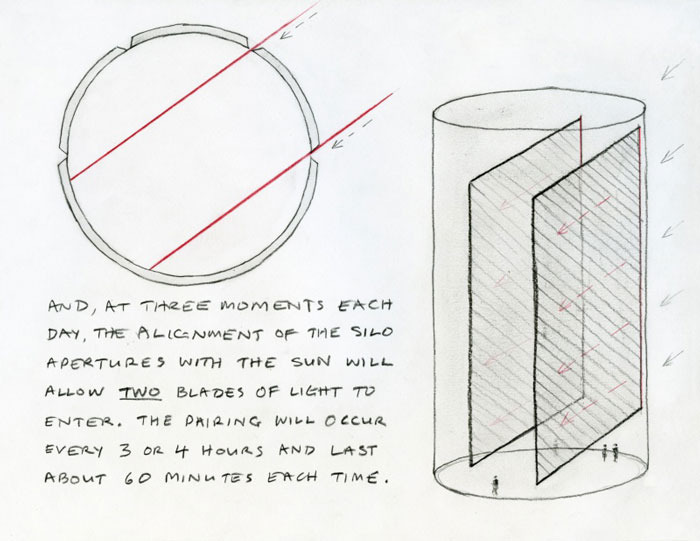 AND, AT THREE MOMENTS EACH
DAY, THE ALIGNMENT OF THE SILO
APERTURES WITH THE SUN WILL
ALLOW TWO BLADES OF LIGHT TO
ENTER. THE PAIRING WILL OCCUR
EVERY 3 OR 4 HOURS AND LAST
ABOUT 60 MINUTES EACH TIME.